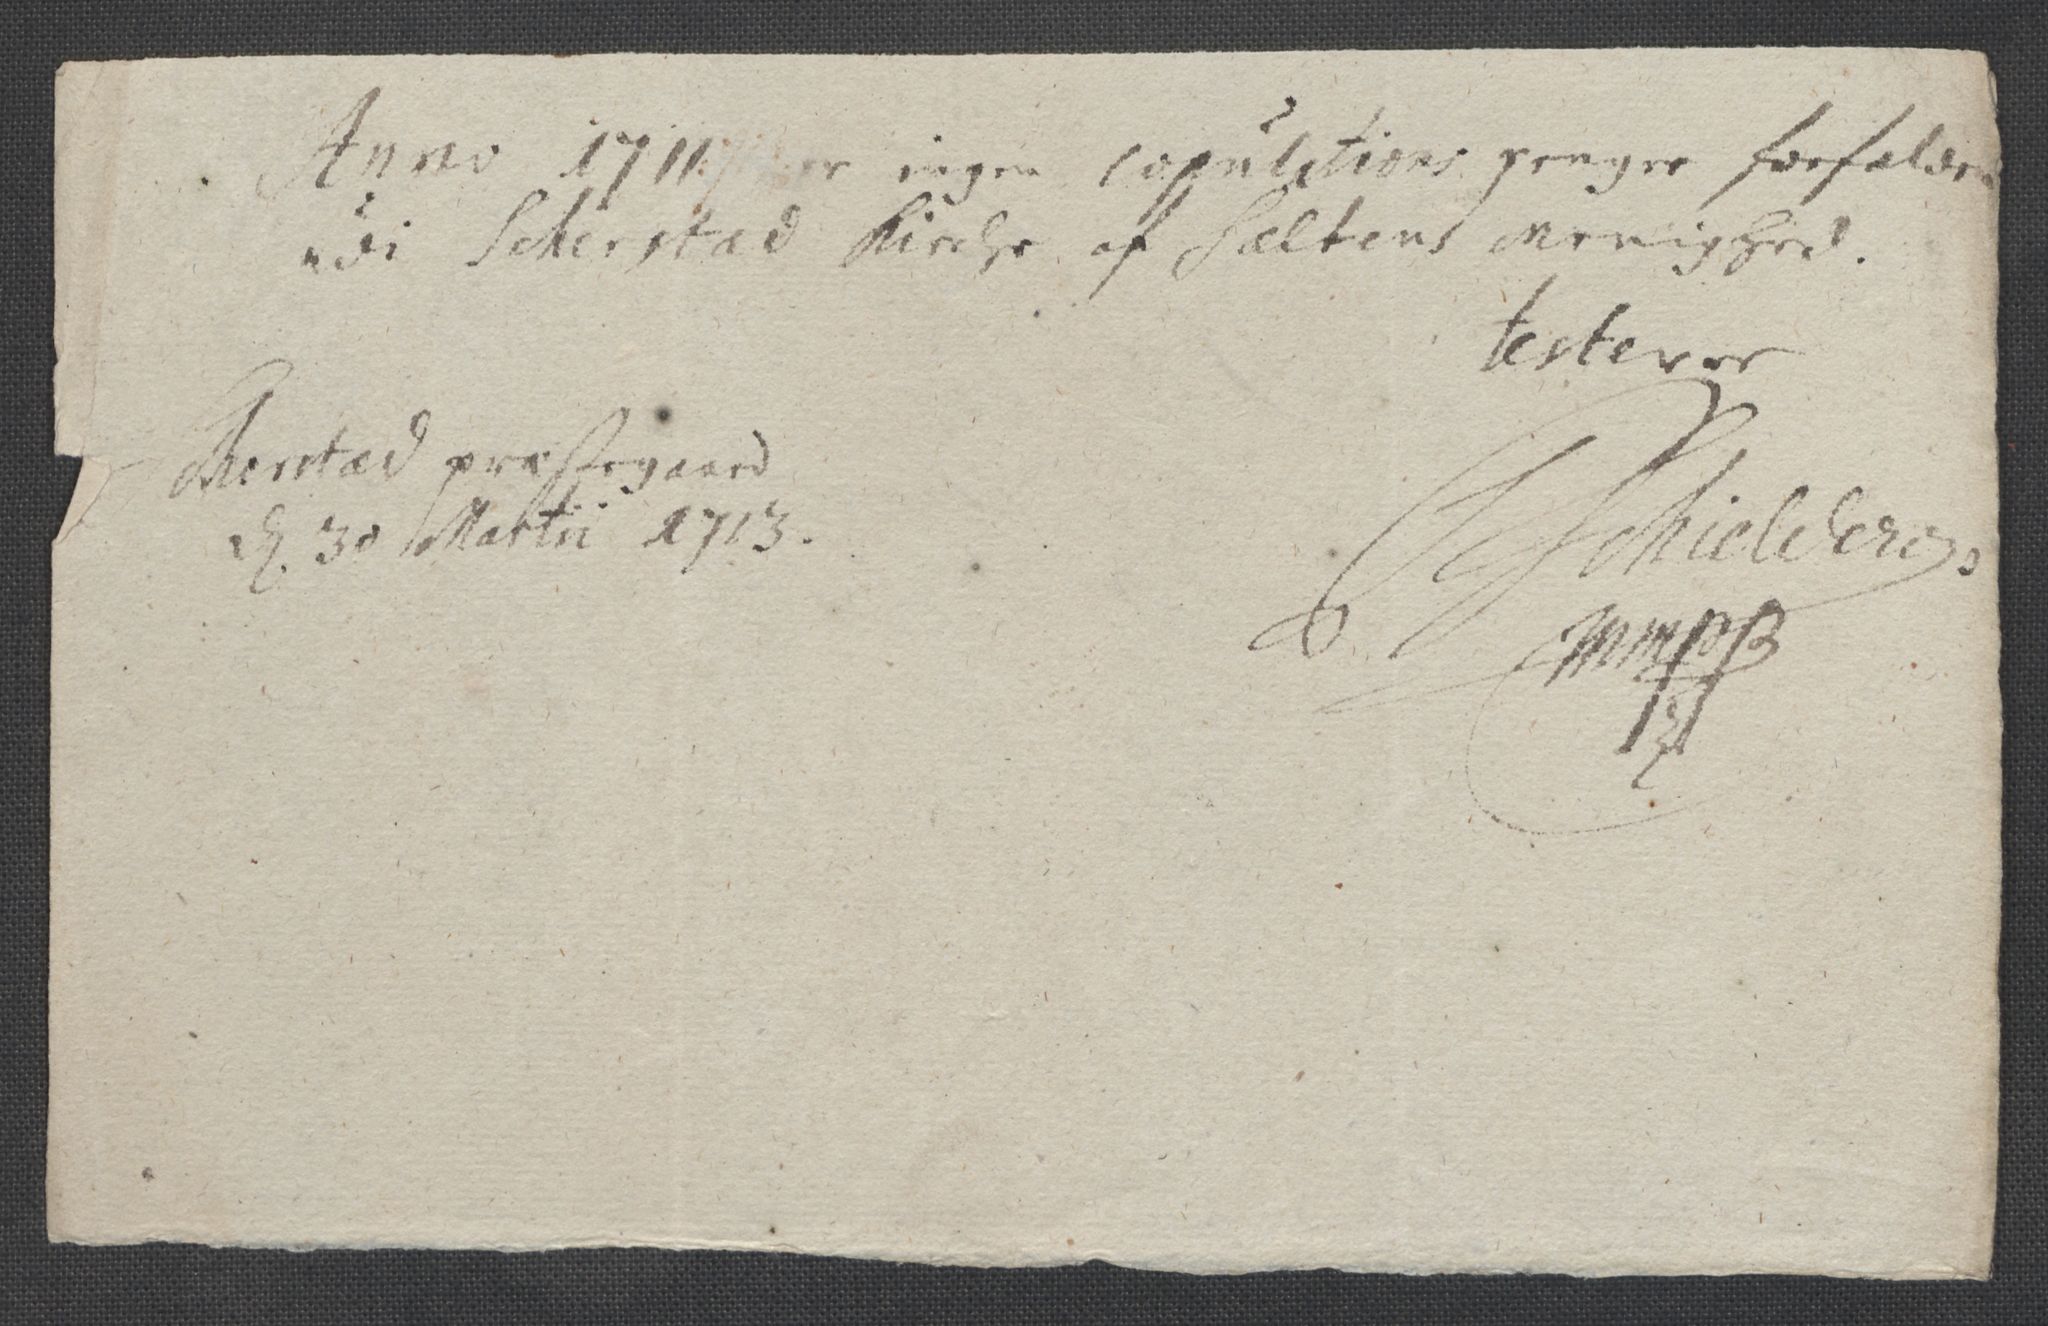 Anno 1711 er ingen copulations penger forfalden
udi Scherstad Kirche af Saltens Menighed.
testerer
Scherstad præstegaard
d. 30 Martii 1713.
Schielderup
mmpp